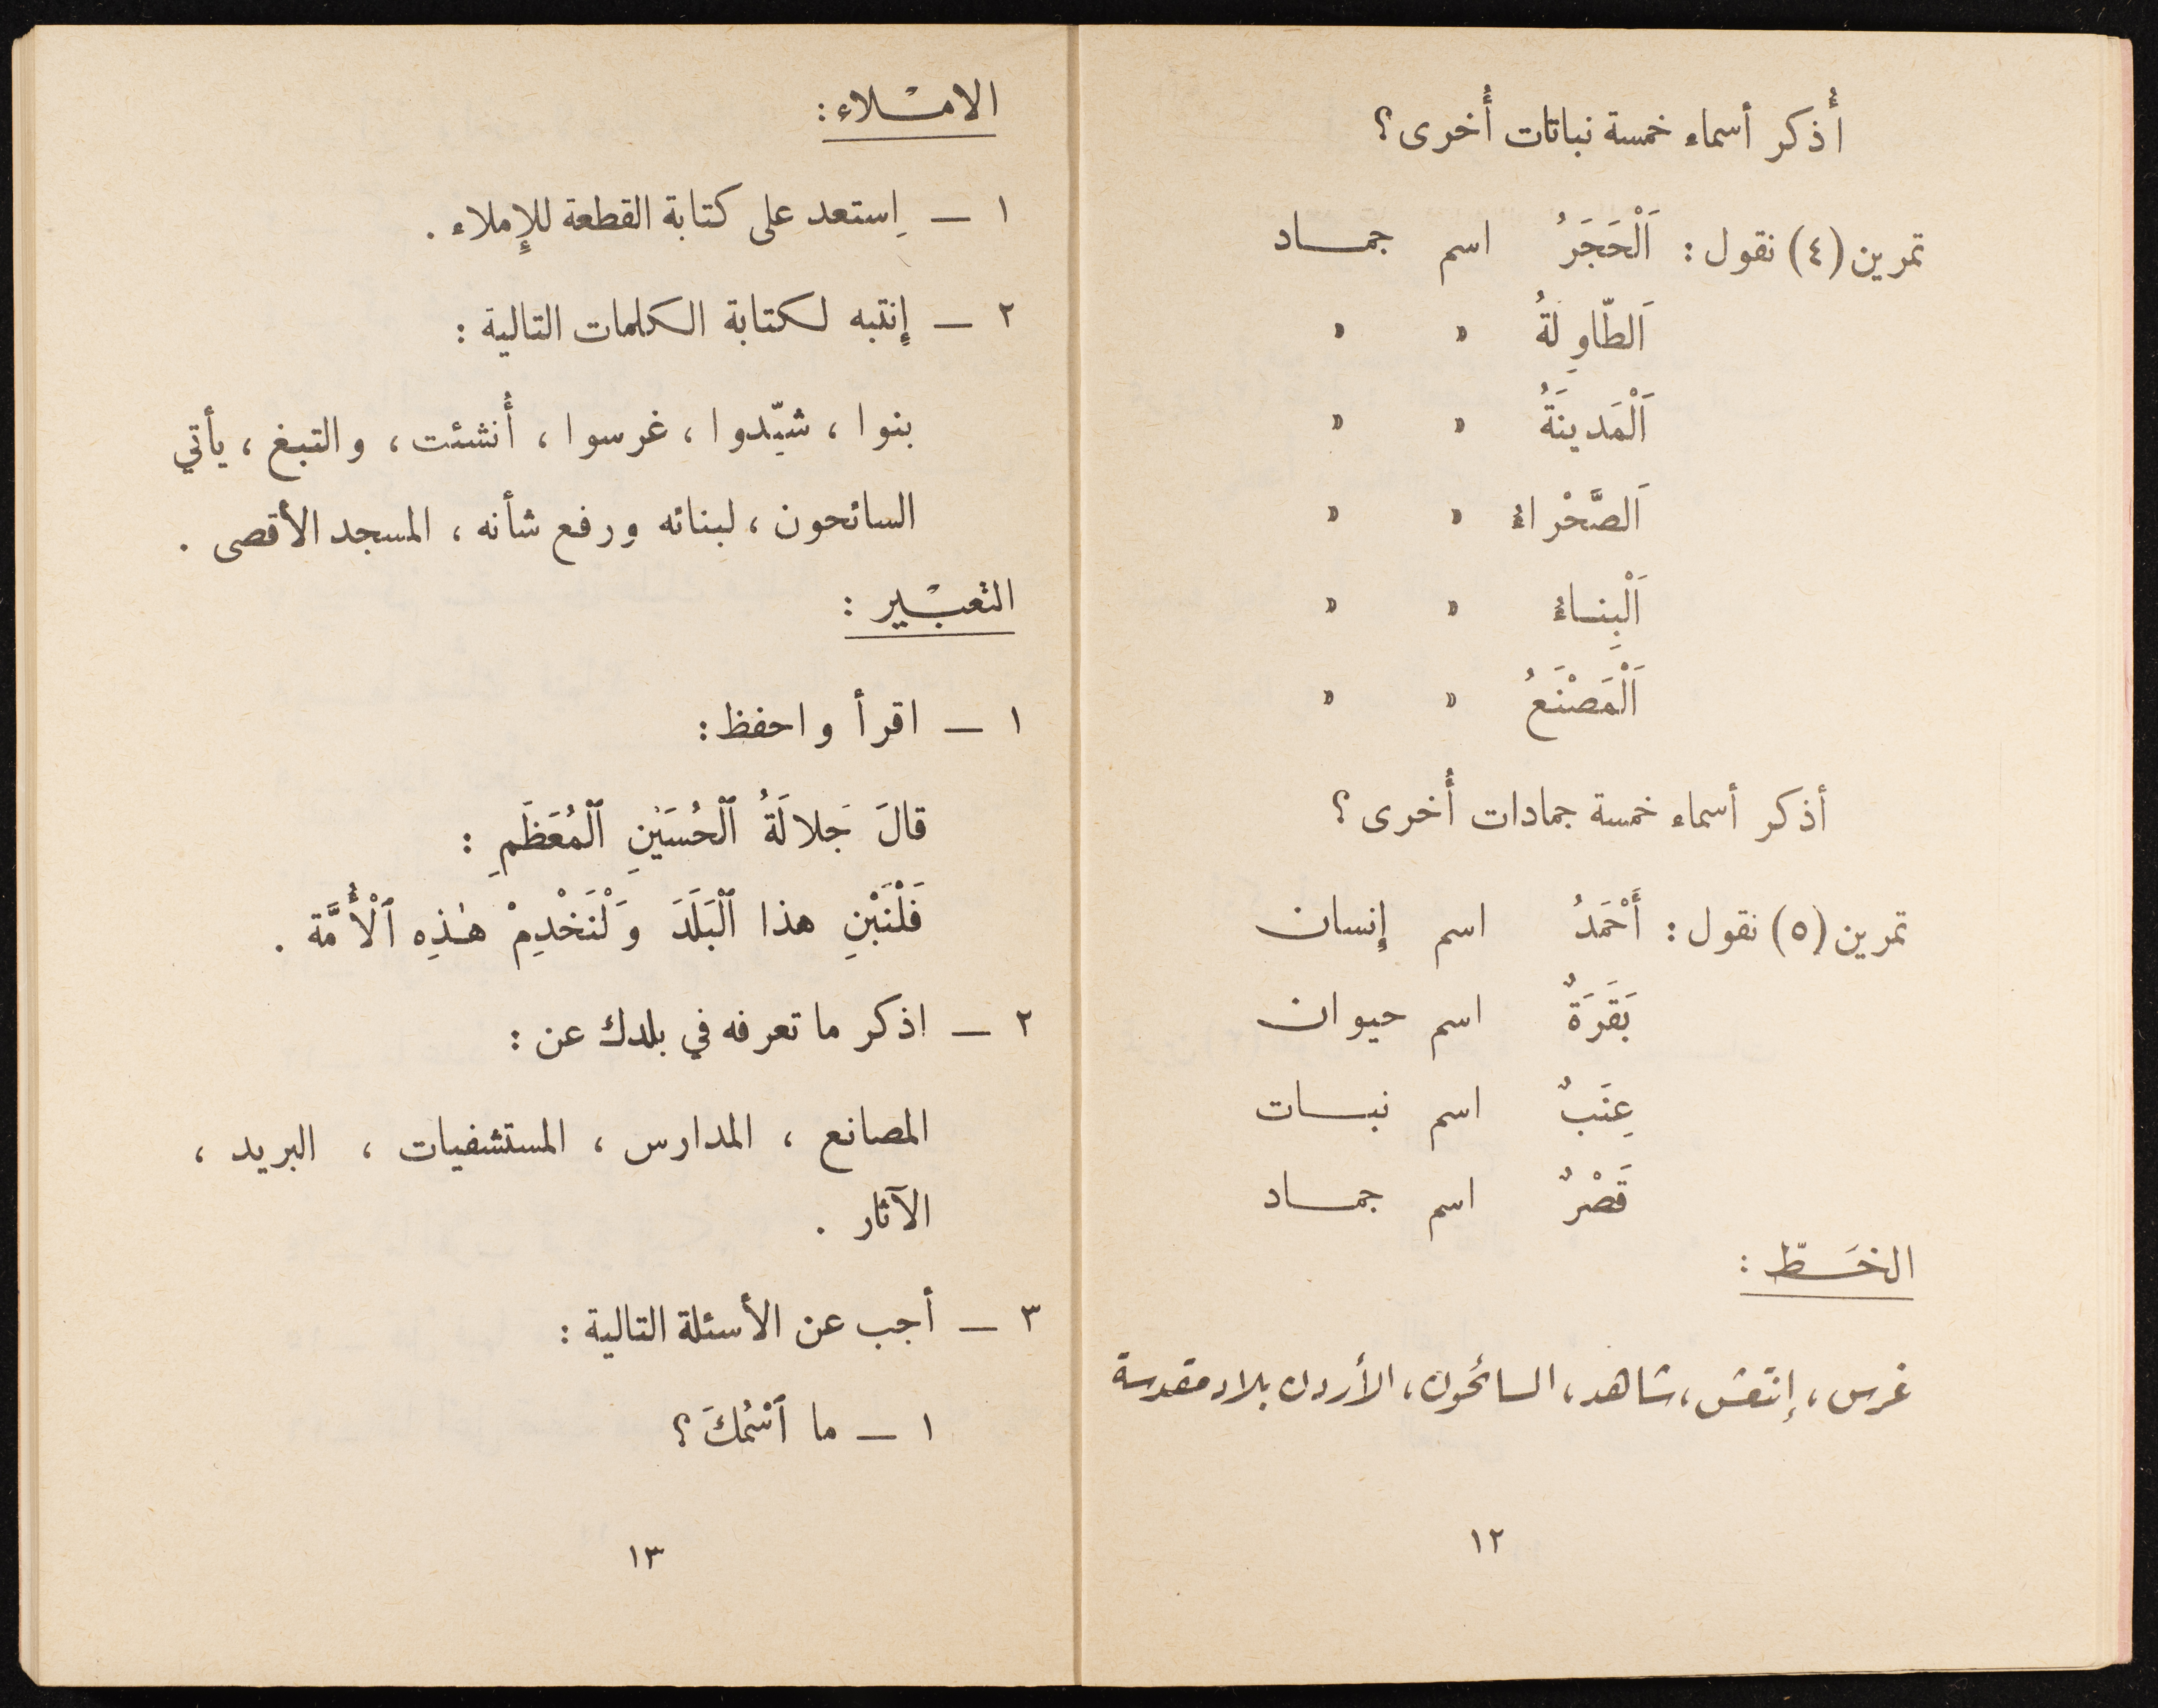 أُذكر أسماء خمسة نباتات أُخرى؟
تمرين (٤) نقول : اَلْحَجَرُ اسم جمــاد
اَلطّاوِلَةُ » »
اَلْمَدينَةُ » »
اَلصَّحْراءُ » »
اَلْبِنــاءُ » »
اَلْمَصْنَعُ » »
أذكر أسماء خمسة جمادات أُخرى؟
تمرين (٥) نقول : أَحْمَدُ اسم إنسان
بَقَرَةٌ اسم حيوان
عِنَبٌ اسم نبــات
قَصْرٌ اسم جمــاد
الخَــطّ :
غرس ، إنتعش ، شاهد ، السائحون ، الأردن بلاد مقدسة
١٢
الامْــلاء :
١ — اِستعد على كتابة القطعة للإملاء .
٢ — إنتبه لكتابة الكلمات التالية :
بنوا ، شيّدوا ، غرسوا ، أُنشئت ، والتبغ ، يأتي
السائحون ، لبنائه ورفع شأنه ، المسجد الأقصى .
التعبْــير :
١ — اقرأ واحفظ :
قالَ جَلالَةُ ٱلْحُسَيْنِ ٱلْمُعَظَّمِ :
فَلْنَبْنِ هذا ٱلْبَلَدَ وَلْنَخْدِمْ هٰذِهِ ٱلْأُمَّة .
٢ — اذكر ما تعرفه في بلدك عن :
المصانع ، المدارس ، المستشفيات ، البريد ،
الآثار .
٣ — أجب عن الأسئلة التالية :
١ — ما ٱسْمُكَ ؟
١٣